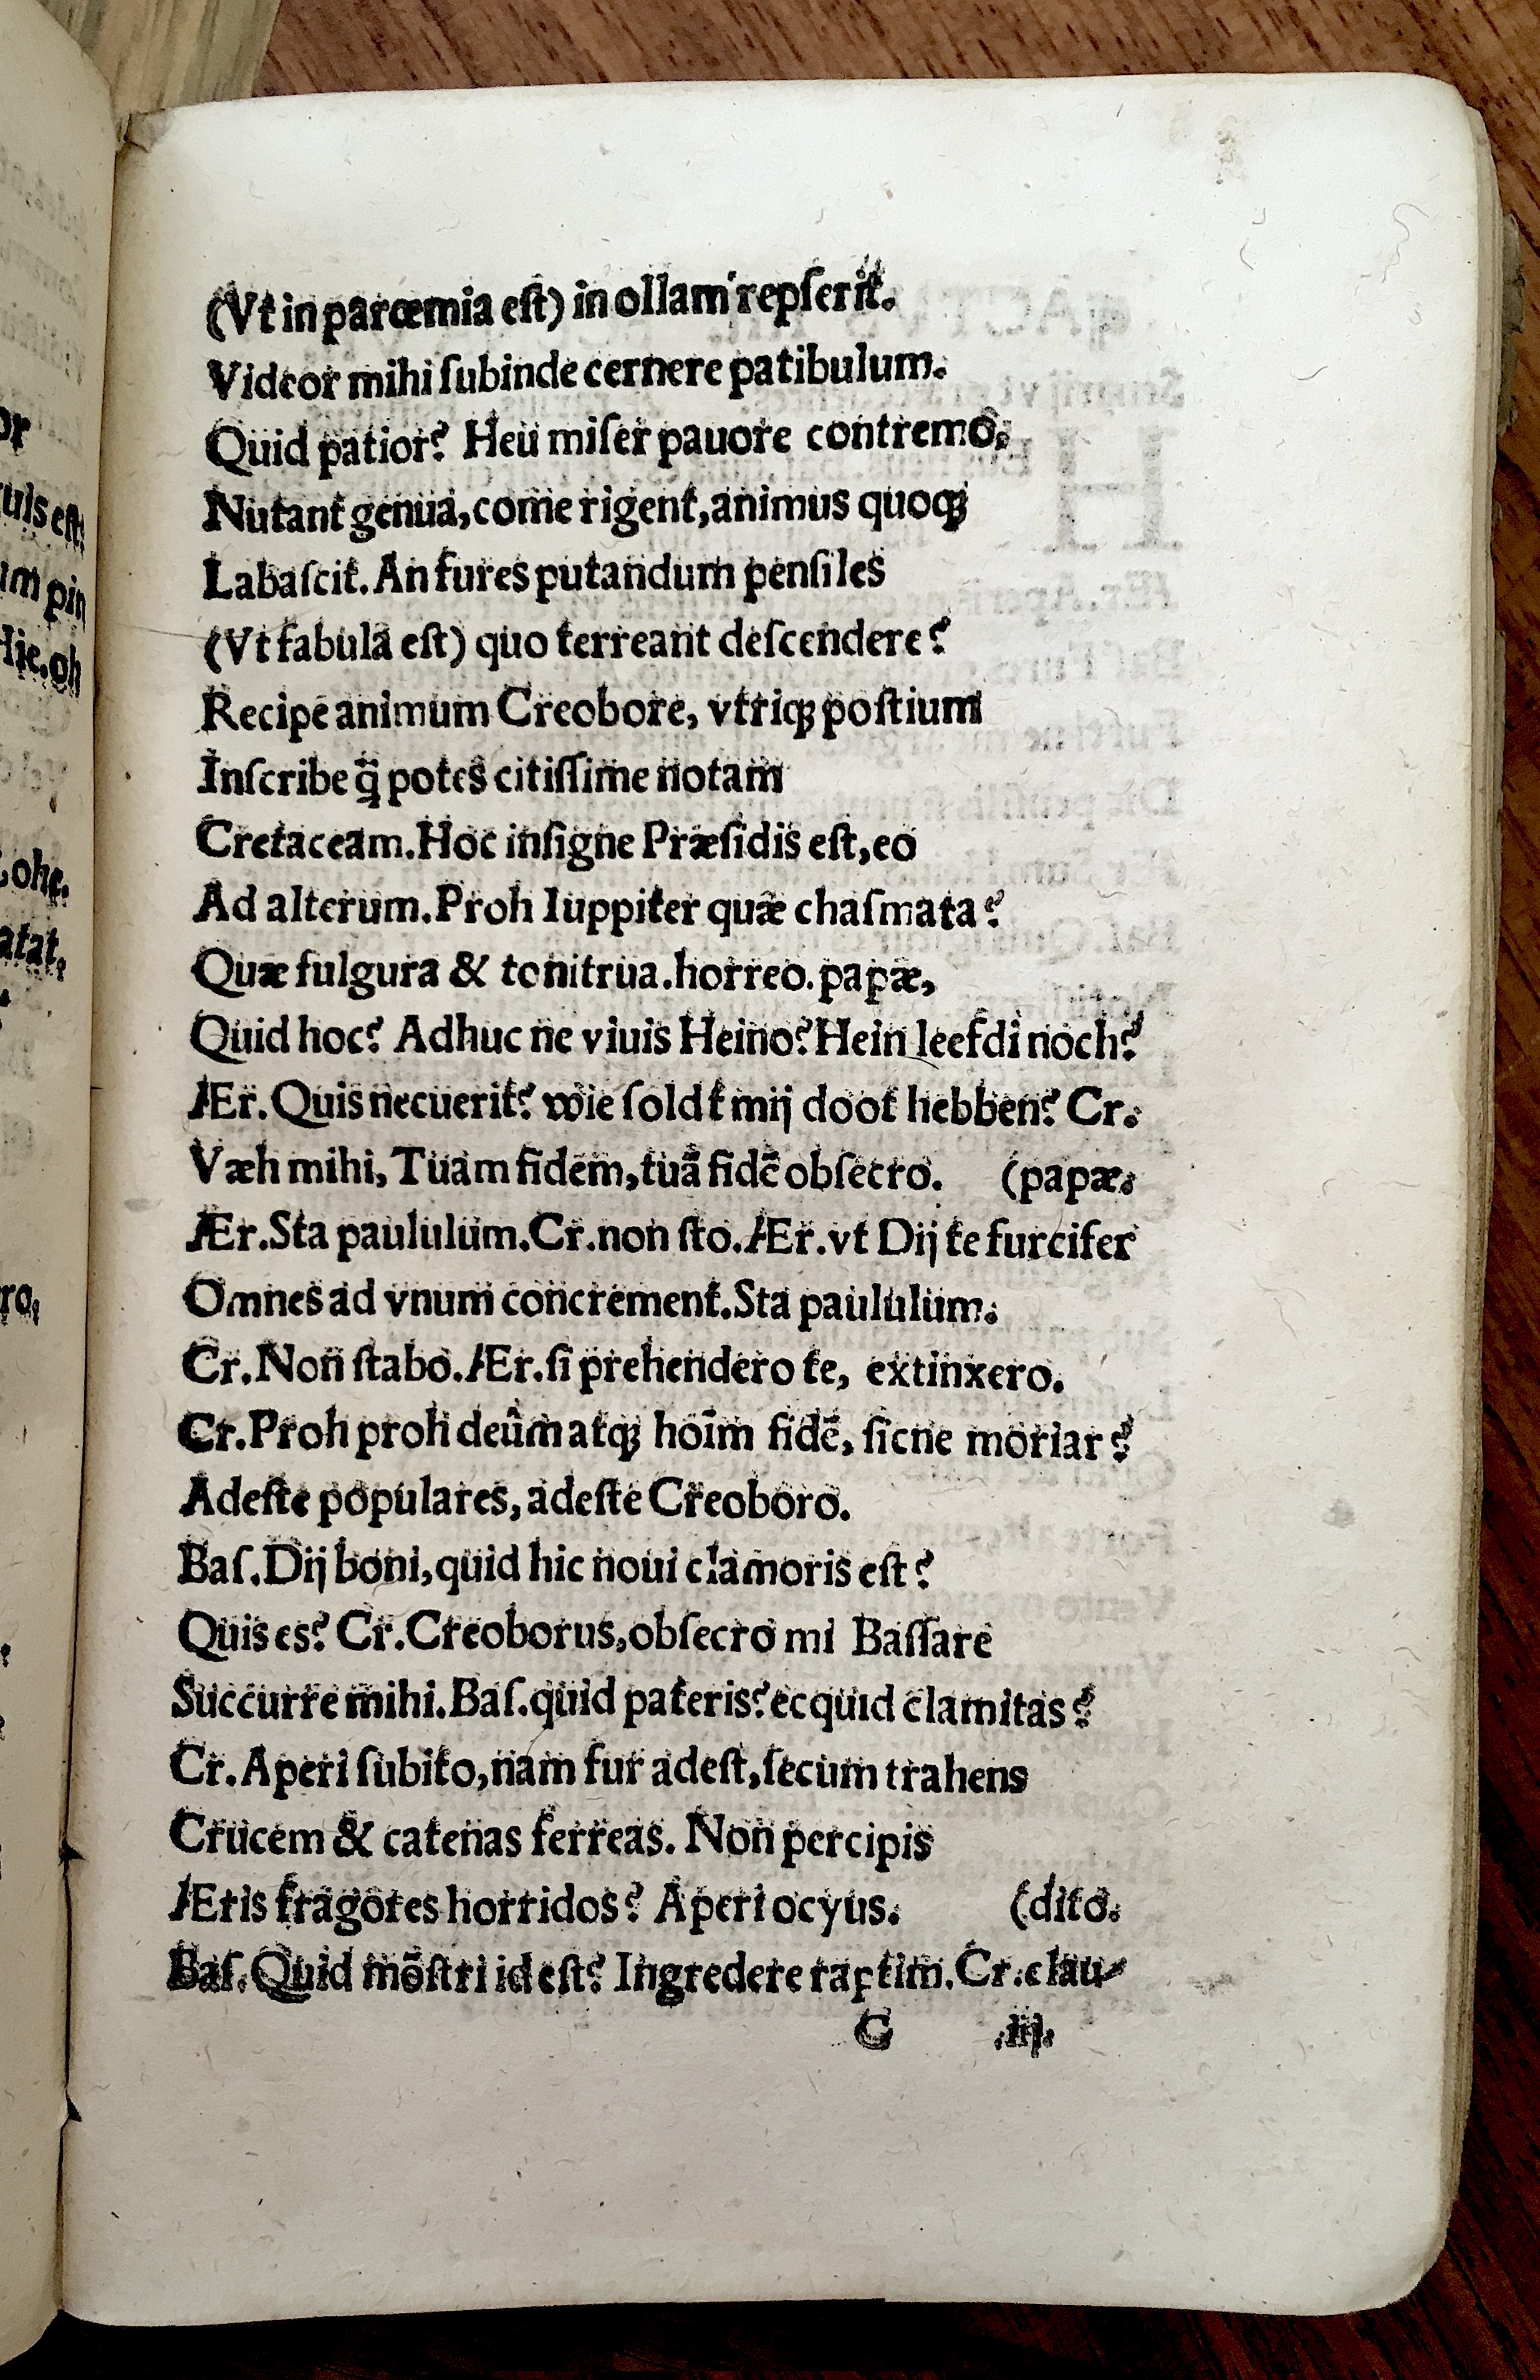 (Vt in parœmia eſt) in ollam repſerit.
Videor mihi ſubinde cernere patibulum.
Quid patior? Heu miſer pauore contremo.
Nutant genua, come rigent, animus quoqꝫ
Labaſcit. An fures putandum penſiles
(Vt fabula eſt) quo terreant deſcendere?
Recipe animum Creobore, vtriqꝫ poſtium
Inſcribe q̃ potes citiſſime notam
Cretaceam. Hoc inſigne Præſidis eſt, eo
Ad alterum. Proh Iuppiter quæ chaſmata?
Quæ fulgura & tonitrua. horreo. papæ,
Quid hoc? Adhuc ne viuis Heino? Hein leefdi noch?
Ær. Quis necuerit? wie ſoldt mij doot hebben? Cr.
Væh mihi, Tuam fidem, tuã fidẽ obſecro. (papæ.
Ær. Sta paululum. Cr. non ſto. Ær. vt Dij te furcifer
Omnes ad vnum concrement. Sta paululum.
Cr. Non ſtabo. Ær. ſi prehendero te, extinxero.
Cr. Proh proh deûm atqꝫ hoīm fidẽ, ſicne moriar?
Adeſte populares, adeſte Creoboro.
Baſ. Dij boni, quid hic noui clamoris eſt?
Quis es? Cr. Creoborus, obſecro mi Baſſare
Succurre mihi. Baſ. quid pateris? ecquid clamitas?
Cr. Aperi ſubito, nam fur adeſt, ſecum trahens
Crucem & catenas ferreas. Non percipis
Æris fragores horridos? Aperi ocyus. (dito.
Baſ. Quid mõſtri id eſt? Ingredere raptim. Cr. clau-
C iij.